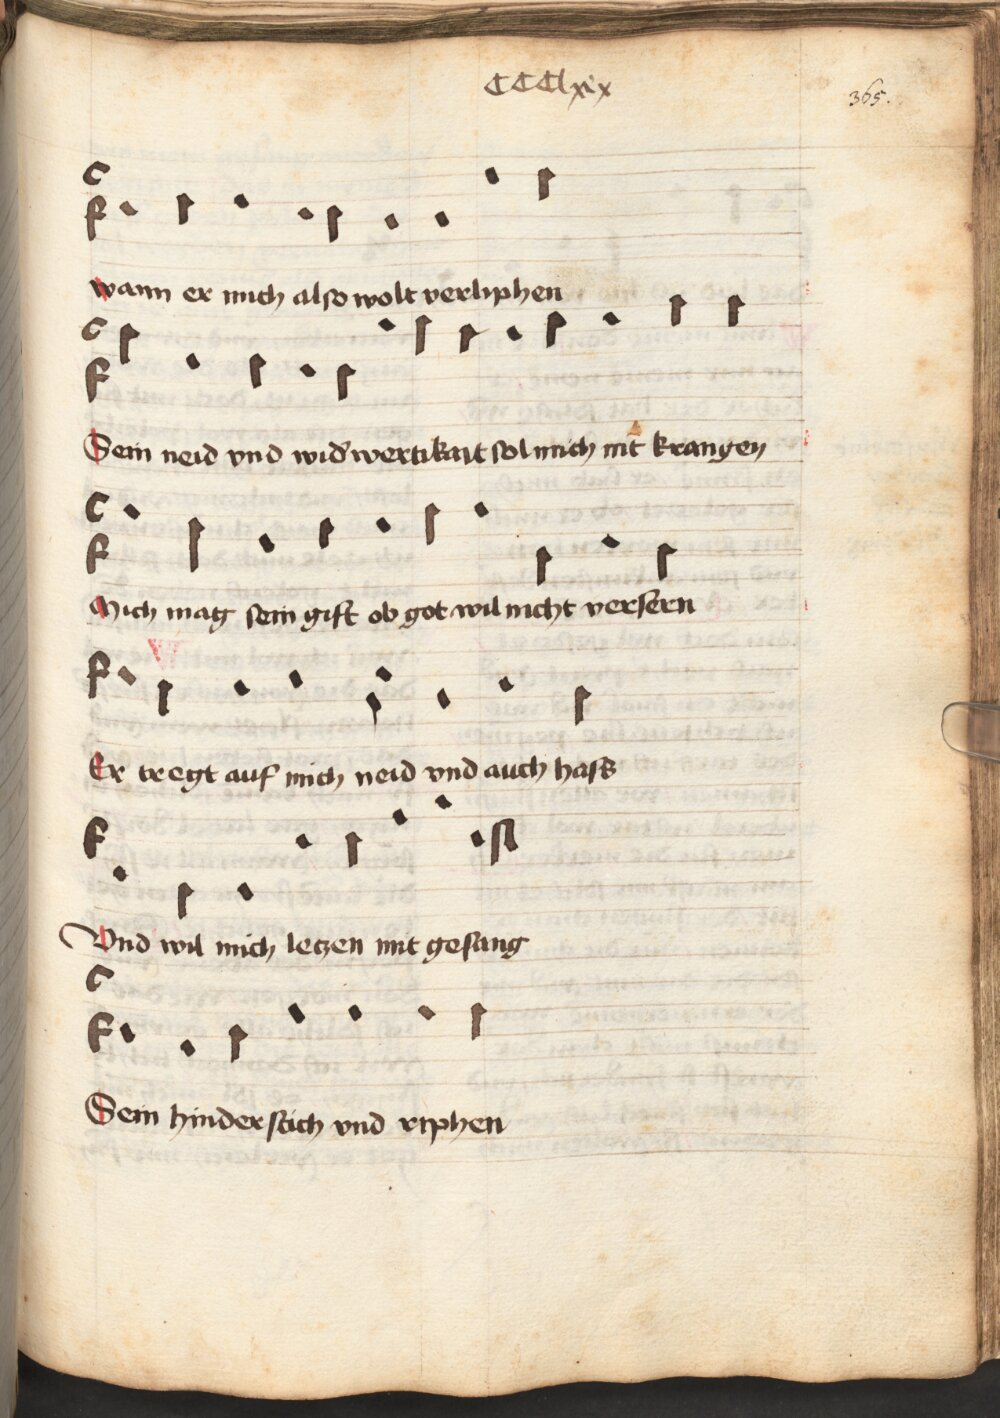 CCClxix
365.
wann er mich also wolt verliphen
Sein neid vnd wid'wertikait sol mich nit krangen
Mich mag sein gift ob got wil nicht versern
W
Er tregt auf mich neid vnd auch hass
Vnd wil mich leczen mit gesang
Sein hinderstich vnd riphen